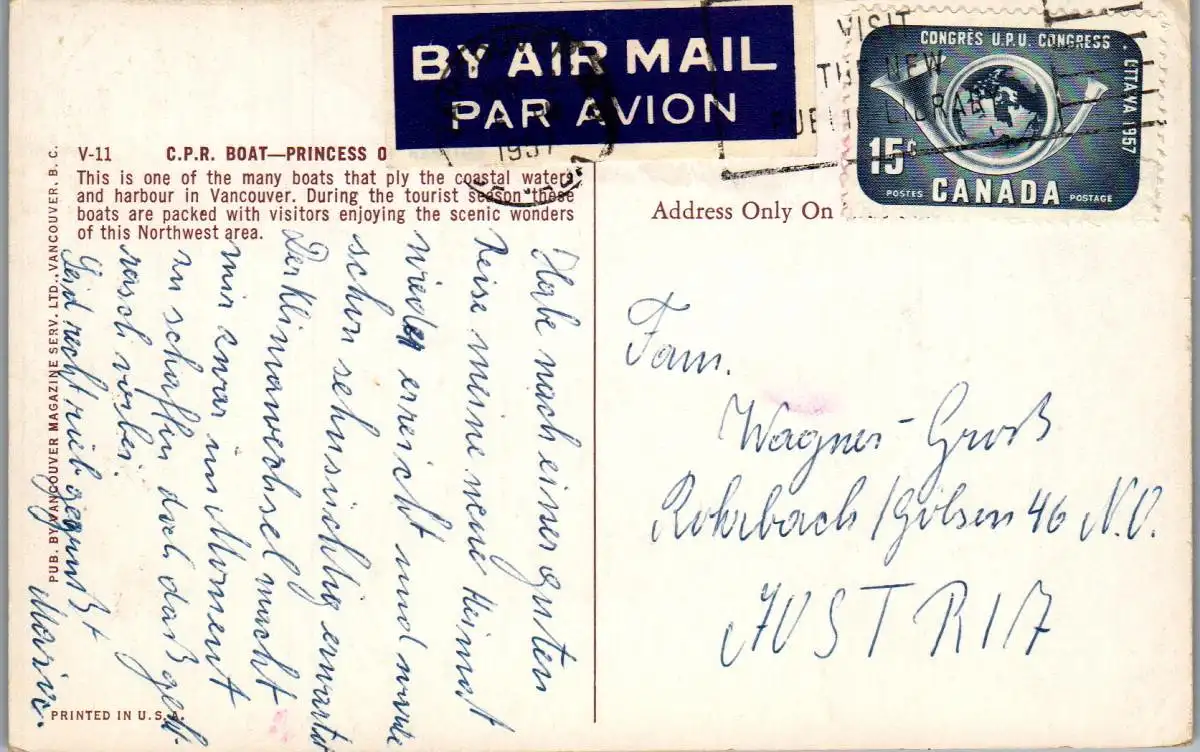 BY AIR MAIL
PAR AVION
VISIT
THE NEW
PUBLIC LIBRARY
1957
CONGRÈS U.P.U. CONGRESS
OTTAWA 1957
15c
POSTES CANADA POSTAGE
V-11 C.P.R. BOAT—PRINCESS O
This is one of the many boats that ply the coastal waters
and harbour in Vancouver. During the tourist season these
boats are packed with visitors enjoying the scenic wonders
of this Northwest area.
Address Only On
PUB. BY VANCOUVER MAGAZINE SERV. LTD., VANCOUVER, B. C.
PRINTED IN U. S. A.
Habe nach einer guten
Reise meine neue Heimat
wieder erreicht und wurde
schon sehnsüchtig erwartet
Der Klimawechsel macht
mir zwar im Moment
zu schaffen doch das geht
rasch vorbei.
Seid recht lieb gegrüßt
Fam.
Wagner-Groß
Rohrbach/Gölsen 46 N.Ö.
AUSTRIA